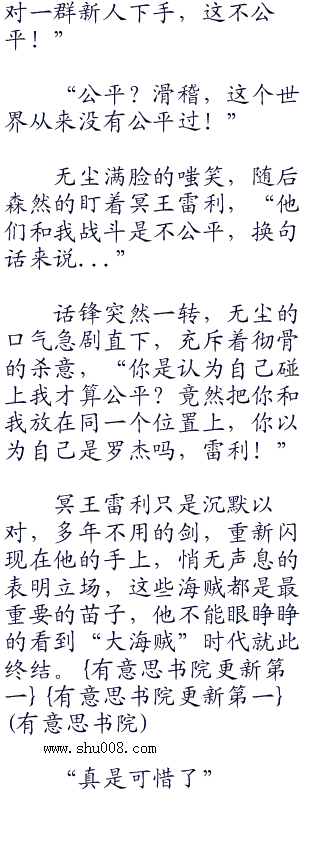 对一群新人下手，这不公
平！”
“公平？滑稽，这个世
界从来没有公平过！”
无尘满脸的嗤笑，随后
森然的盯着冥王雷利，“他
们和我战斗是不公平，换句
话来说...”
话锋突然一转，无尘的
口气急剧直下，充斥着彻骨
的杀意，“你是认为自己碰
上我才算公平？竟然把你和
我放在同一个位置上，你以
为自己是罗杰吗，雷利！”
冥王雷利只是沉默以
对，多年不用的剑，重新闪
现在他的手上，悄无声息的
表明立场，这些海贼都是最
重要的苗子，他不能眼睁睁
的看到“大海贼”时代就此
终结。{有意思书院更新第
一}{有意思书院更新第一}
(有意思书院)
www.shu008.com
“真是可惜了”